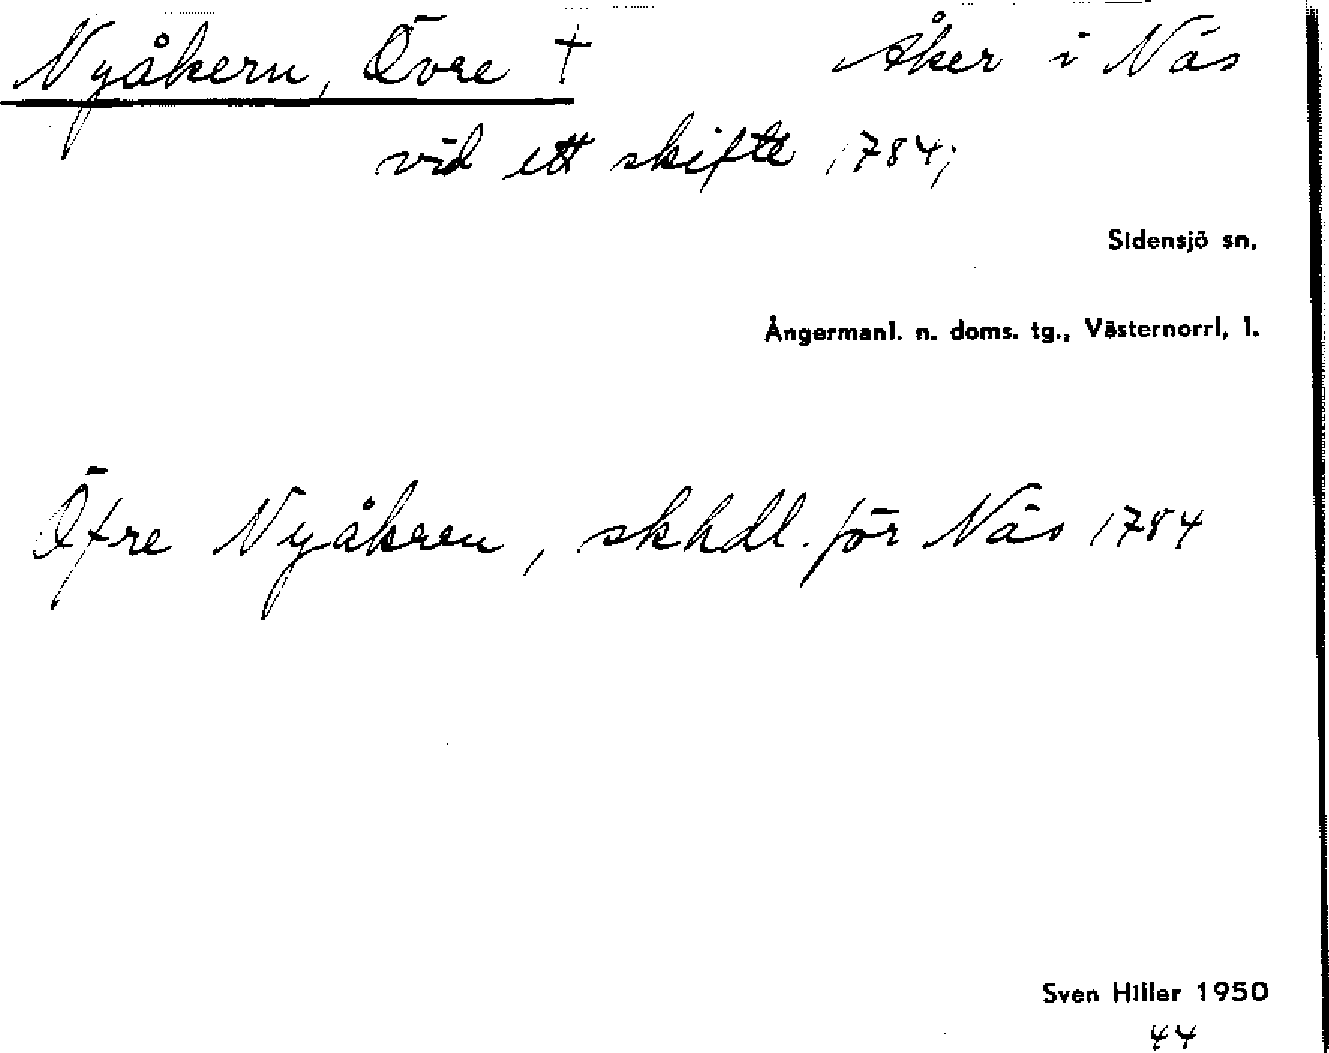 Nyåkern, Övre † Åker i Näs
vid ett skifte 1784;
Sidensjö sn.
Ångermanl. n. doms. tg., Västernorrl, l.
Öfre Nyåkren, skhdl. för Näs 1784
Sven Hiller 1950
44